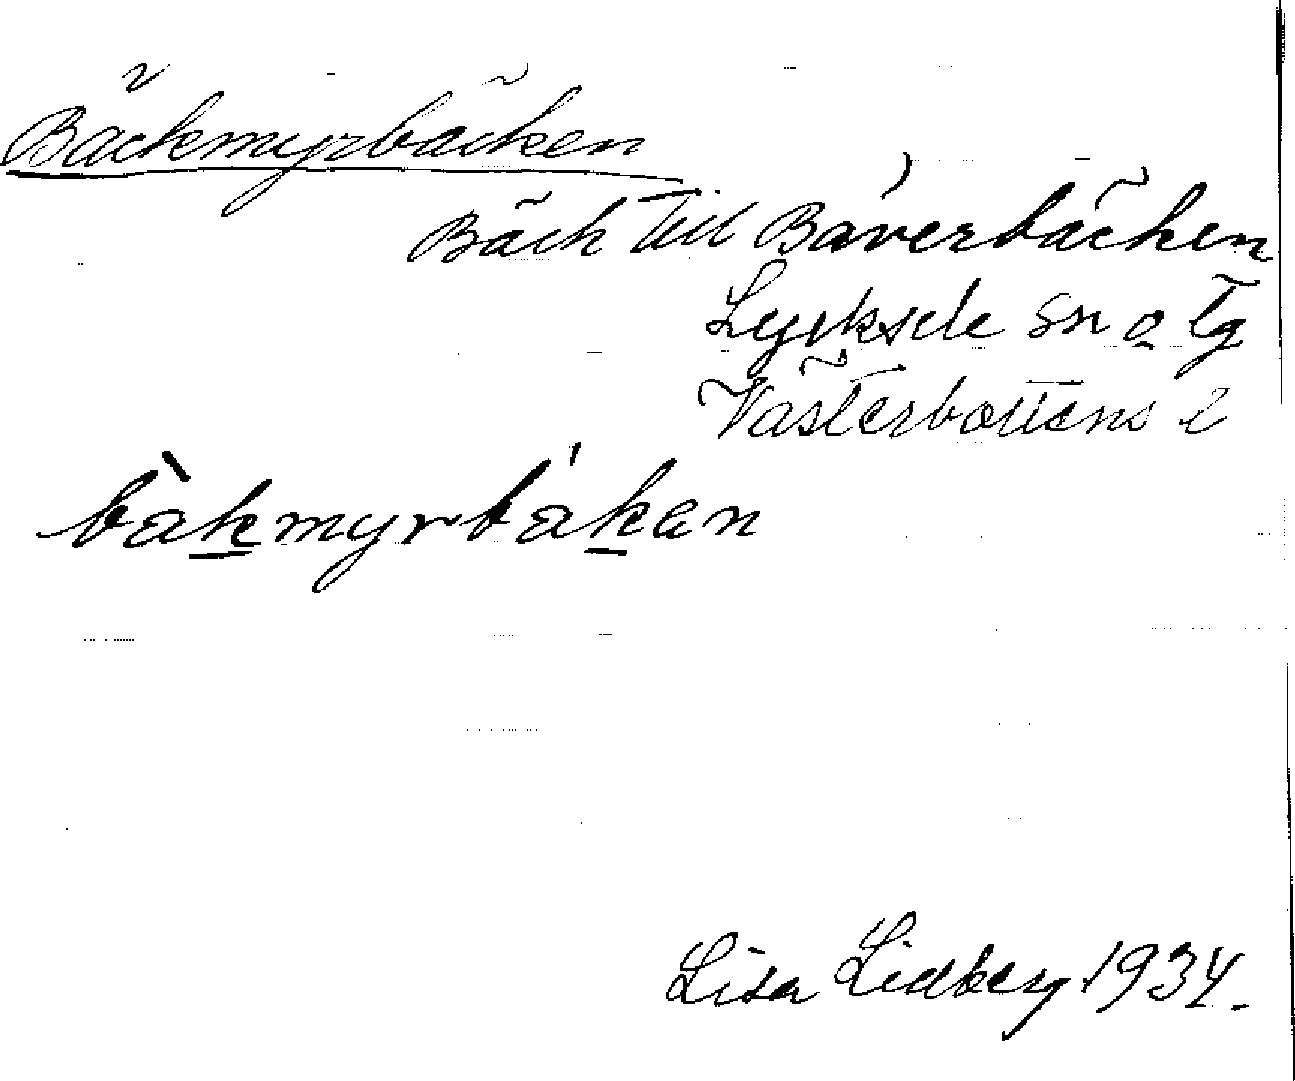 Bäckmyrbäcken
Bäck till Bäverbäcken
Lycksele sn o tg
Västerbottens l
bàkmyrbákan
Lisa Lidberg 1934.